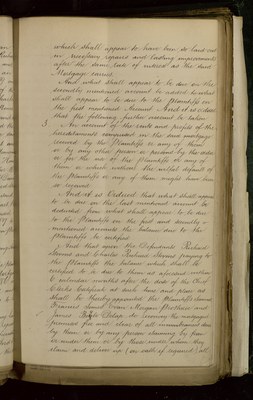 which shall appear to have been so laid out
in necessary repairs and lasting improvements
after the same rate of interest as the said
Mortgage carries
And what shall appear to be due on the
secondly mentioned account be added to what
shall appear to be due to the Plaintiffs on
the first mentioned Account And it is ordered
that the following further account be taken
3 An account of the rents and profits of the
hereditaments comprised in the said mortgage
received by the Plaintiffs or any of them
or by any other person or persons by the order
or for the use of the Plaintiffs or any of
them or which without the wilful default of
the Plaintiffs or any of them might have been
so received
And it is Ordered that what shall appear
to be due on the last mentioned account be
deducted from what shall appear to be due
to the Plaintiffs on the first and secondly
mentioned accounts the balance due to the
Plaintiffs be certified
And that upon the Defendants Richard
and Charles Richard paying to
the Plaintiffs the balance which shall be
certified to be due to them as aforesaid within
6 calendar months after the date of the Chief
Clerks Certificate at such time and place as
shall be thereby appointed the Plaintiffs
Francis Morgan and
James do reconvey the mortgaged
premises free and clear of all incumbrances done
by them or by any person claiming by from
or under them or by those under whom they
claim and deliver up (on oath if required) all